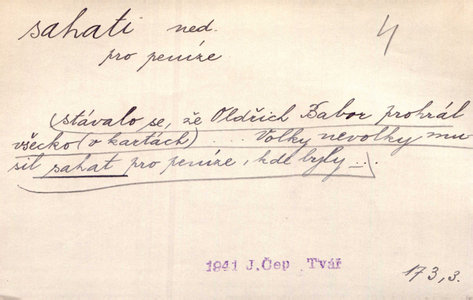 sahati ned. 4
pro peníze
(stávalo se, že Oldřich Babor prohrál
všecko (v kartách) ... Volky nevolky mu-
sil sahat pro peníze, kde byly ...
1941 J.Čep Tvář
173,3.